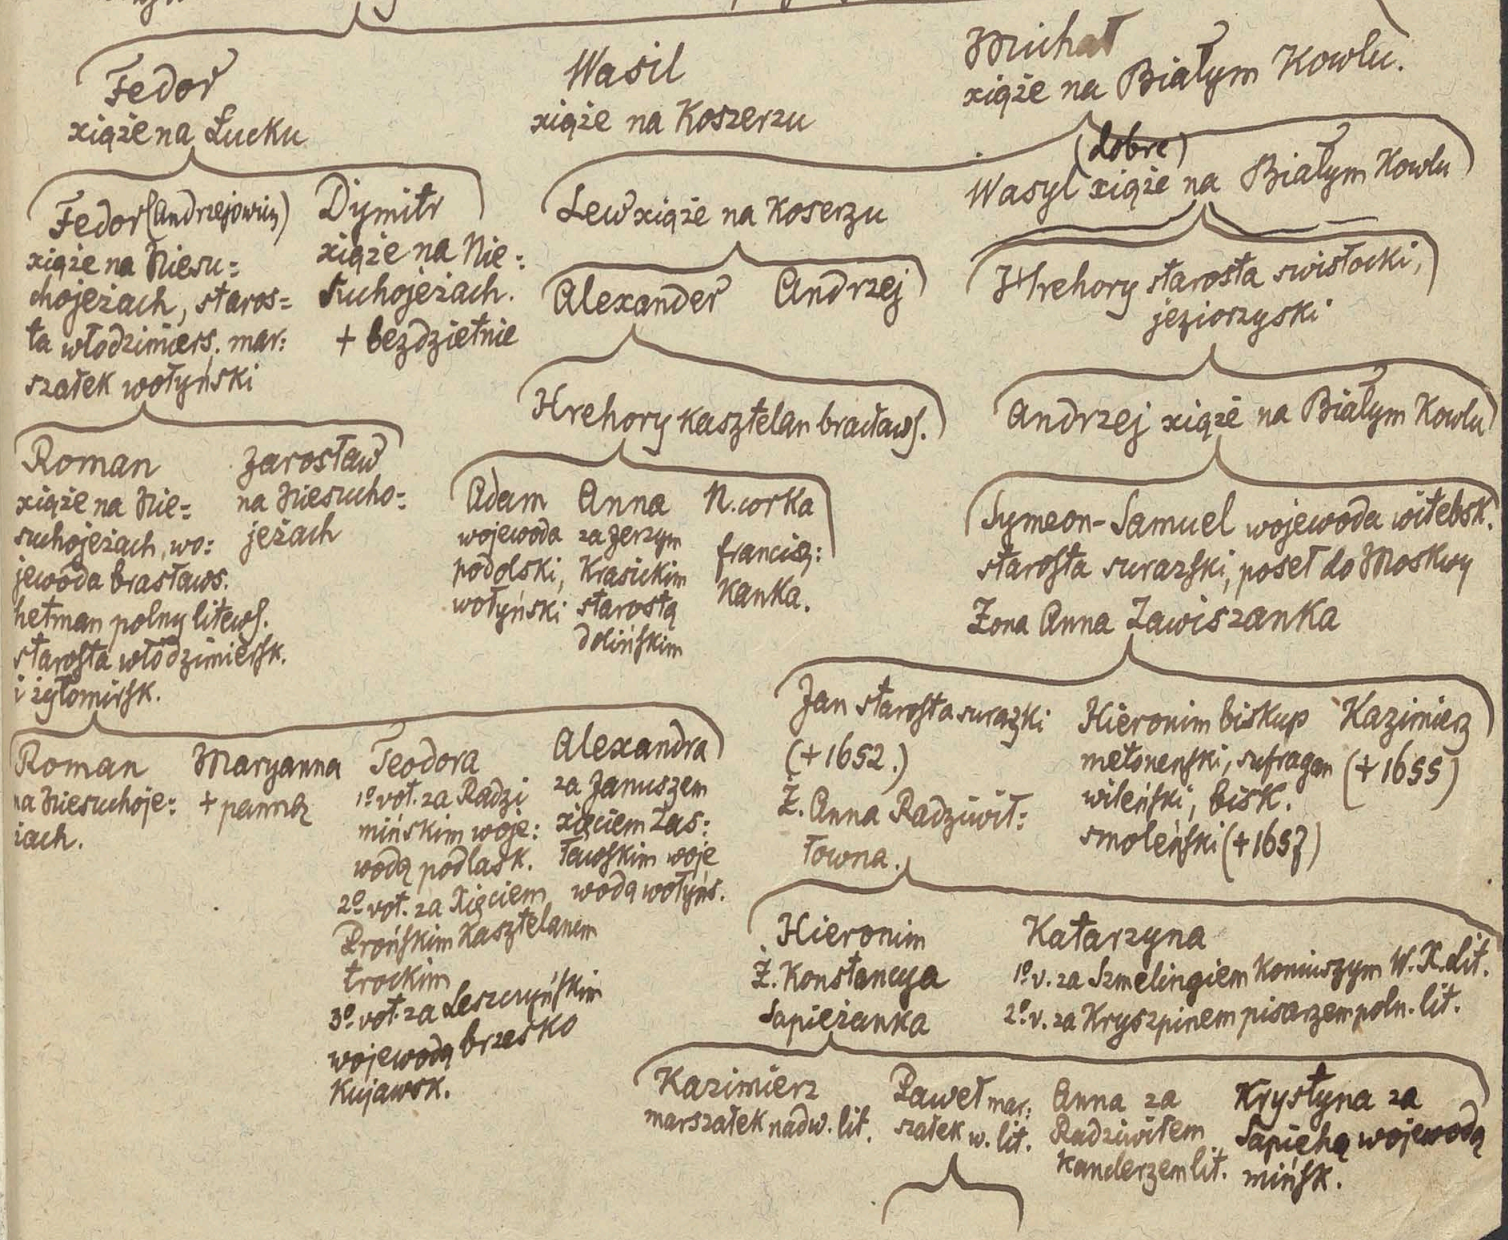 Fedor
xiąże na Łucku
Wasil
xiąże na Koszerzu
Michał
xiąże na Białym Kowlu.
Fedor (Andrzejowicz)
xiąże na Niesu=
chojeżach, staros=
ta włodzimiers. mar:
szałek wołyński
Dymitr
xiąże na Nie=
suchojeżach.
+ bezdzietnie
Lew xiąże na Koserzu
(dobre)
Wasyl xiąże na Białym Kowlu
Alexander Andrzej
Hrehory starosta swisłocki,
jeziorzyski
Hrehory kasztelan bracławs.
Andrzej xiąże na Białym Kowlu
Roman
xiąże na Nie=
suchojeżach, wo:
jewoda brasławs.
hetman polny litews.
starosta włodzimiersk.
i żytomirsk.
Jarosław
na Niesucho=
jeżach
Adam
wojewoda
podolski,
wołyński
Anna
za Jerzym
Krasickim
starostą
dolińskim
N. corka
francisz:
kanka.
Symeon-Samuel wojewoda witebsk.
starosta surazski, poseł do Moskwy
Żona Anna Zawiszanka
Roman
na Niesuchoje:
żach.
Maryanna
+ panną
Teodora
1º vot. za Radzi
mińskim woje:
wodą podlask.
2º vot. za Xięciem
Prońskim Kasztelanem
trockim
3º vot. za Leszczyńskim
wojewodą brzesko
Kujawsk.
Alexandra
za Januszem
xięciem Zas:
ławskim woje
wodą wołyńs.
Jan starosta surazki
(+ 1652.)
Ż. Anna Radziwił:
łowna.
Hieronim biskup
metonenski, sufragan
wileński, bisk.
smoleński (+ 1657)
Kazimierz
(+ 1655)
Hieronim
Ż. Konstancya
Sapieżanka
Katarzyna
1º v. za Szmelingiem Koniuszym W. X. Lit.
2º v. za Kryszpinem pisarzem poln. lit.
Kazimierz
marszałek nadw. lit.
Paweł mar:
szałek w. lit.
Anna za
Radziwiłem
kanclerzem lit.
Krystyna za
Sapiehą wojewodą
mińsk.